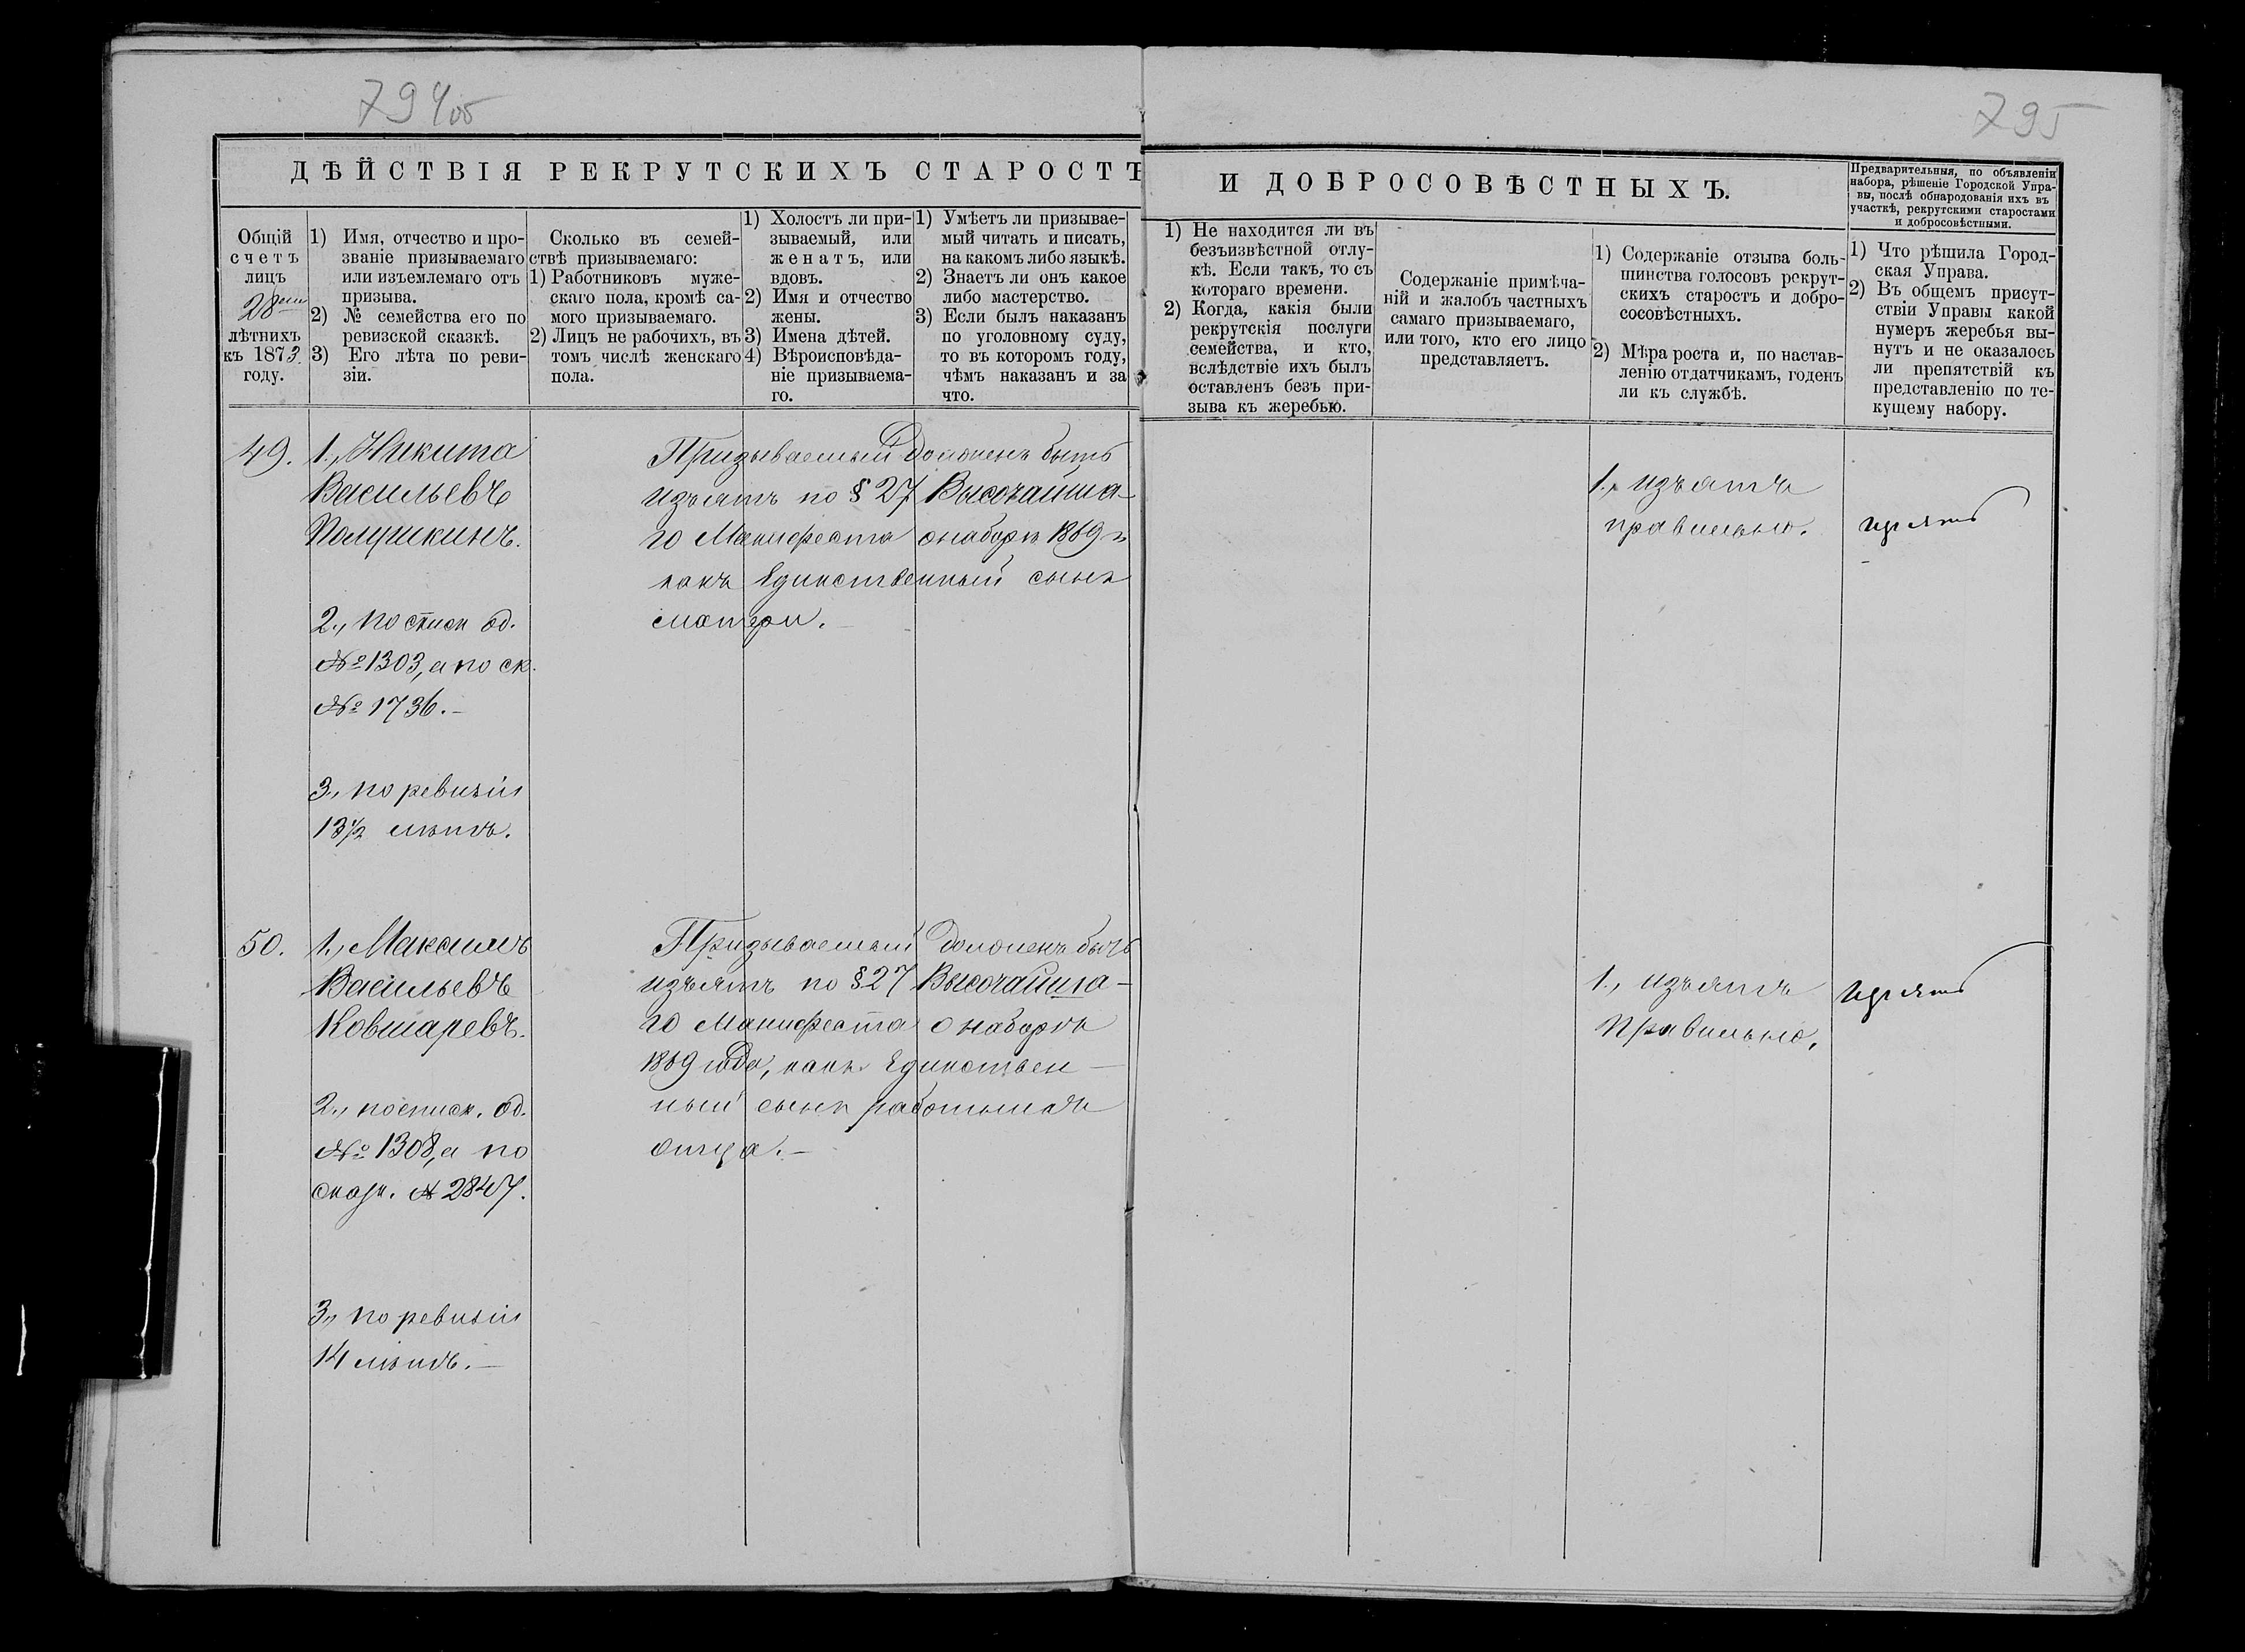 794об
795
ДѢЙСТВІЯ РЕКРУТСКИХЪ СТАРОСТЪ
И ДОБРОСОВѢСТНЫХЪ.
Предварительныя, по объявленіи
набора, рѣшеніе Городской Упра-
вы, послѣ обнародованія ихъ въ
участкѣ, рекрутскими старостами
и добросовѣстными.
Общій
счетъ
лицъ
28ми
лѣтнихъ
къ 1873
году.
1) Имя, отчество и про-
званіе призываемаго
или изъемлемаго отъ
призыва.
2) № семейства его по
ревизской сказкѣ.
3) Его лѣта по реви-
зіи.
Сколько въ семей-
ствѣ призываемаго:
1) Работниковъ муже-
скаго пола, кромѣ са-
мого призываемаго.
2) Лицъ не рабочихъ, въ
томъ числѣ женскаго
пола.
1) Холостъ ли при-
зываемый, или
женатъ, или
вдовъ.
2) Имя и отчество
жены.
3) Имена дѣтей.
4) Вѣроисповѣда-
ніе призываема-
го.
1) Умѣетъ ли призывае-
мый читать и писать,
на какомъ либо языкѣ.
2) Знаетъ ли онъ какое
либо мастерство.
3) Если былъ наказанъ
по уголовному суду,
то въ которомъ году,
чѣмъ наказанъ и за
что.
1) Не находится ли въ
безъизвѣстной отлу-
кѣ. Если такъ, то съ
котораго времени.
2) Когда, какія были
рекрутскія послуги
семейства, и кто,
вслѣдствіе ихъ былъ
оставленъ безъ при-
зыва къ жеребью.
Содержаніе примѣча-
ній и жалобъ частныхъ
самаго призываемаго,
или того, кто его лицо
представляетъ.
1) Содержаніе отзыва боль-
шинства голосовъ рекрут-
скихъ старостъ и добро-
сосовѣстныхъ.
2) Мѣра роста и, по настав-
ленію отдатчикамъ, годенъ
ли къ службѣ.
1) Что рѣшила Город-
ская Управа.
2) Въ общемъ присут-
ствіи Управы какой
нумеръ жеребья вы-
нутъ и не оказалось
ли препятствій къ
представленію по те-
кущему набору.
49.
1., Никита
Васильевъ
Полушкинъ.
2., по списк од.
№ 1303, а по ск.
№ 1736. –
3., по ревизіи
13½ лѣтъ.
Призываемый долженъ быть
изъятъ по § 27 Высочайша-
го Манифеста о наборѣ 1869 г.
какъ Единственный сынъ
матери. –
1., изъятъ
правильно.
изъять
50.
1., Максимъ
Васильевъ
Ковшаревъ.
2., по списк. од.
№ 1308, а по
сказк. № 2847.
3., по ревизіи
14 лѣтъ. –
Призываемый долженъ быть
изъятъ по § 27 Высочайша-
го Манифеста о наборѣ
1869 года, какъ Единствен-
ный сынъ работникъ
отца. –
1., изъятъ
правильно.
изъять